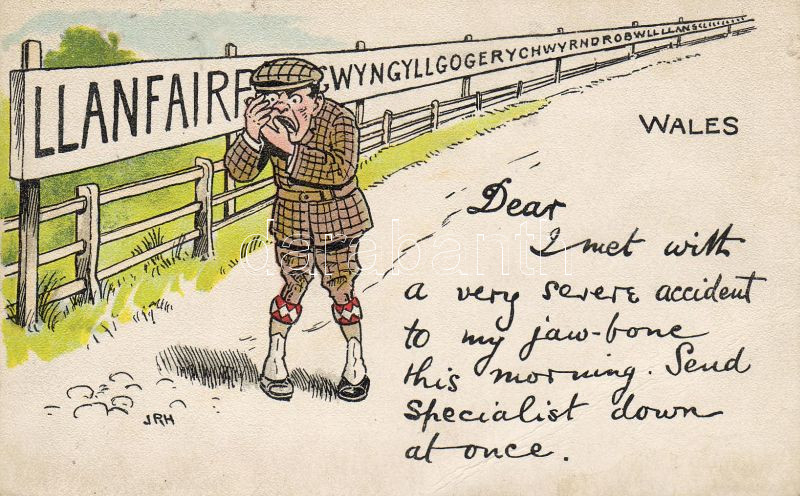 LLANFAIRP GWYNGYLLGOGERYCHWYRNDROBWLLLLANS
WALES
Dear
I met with
a very severe accident
to my jaw-bone
this morning. Send
specialist down
at once.
JRH
darabanth